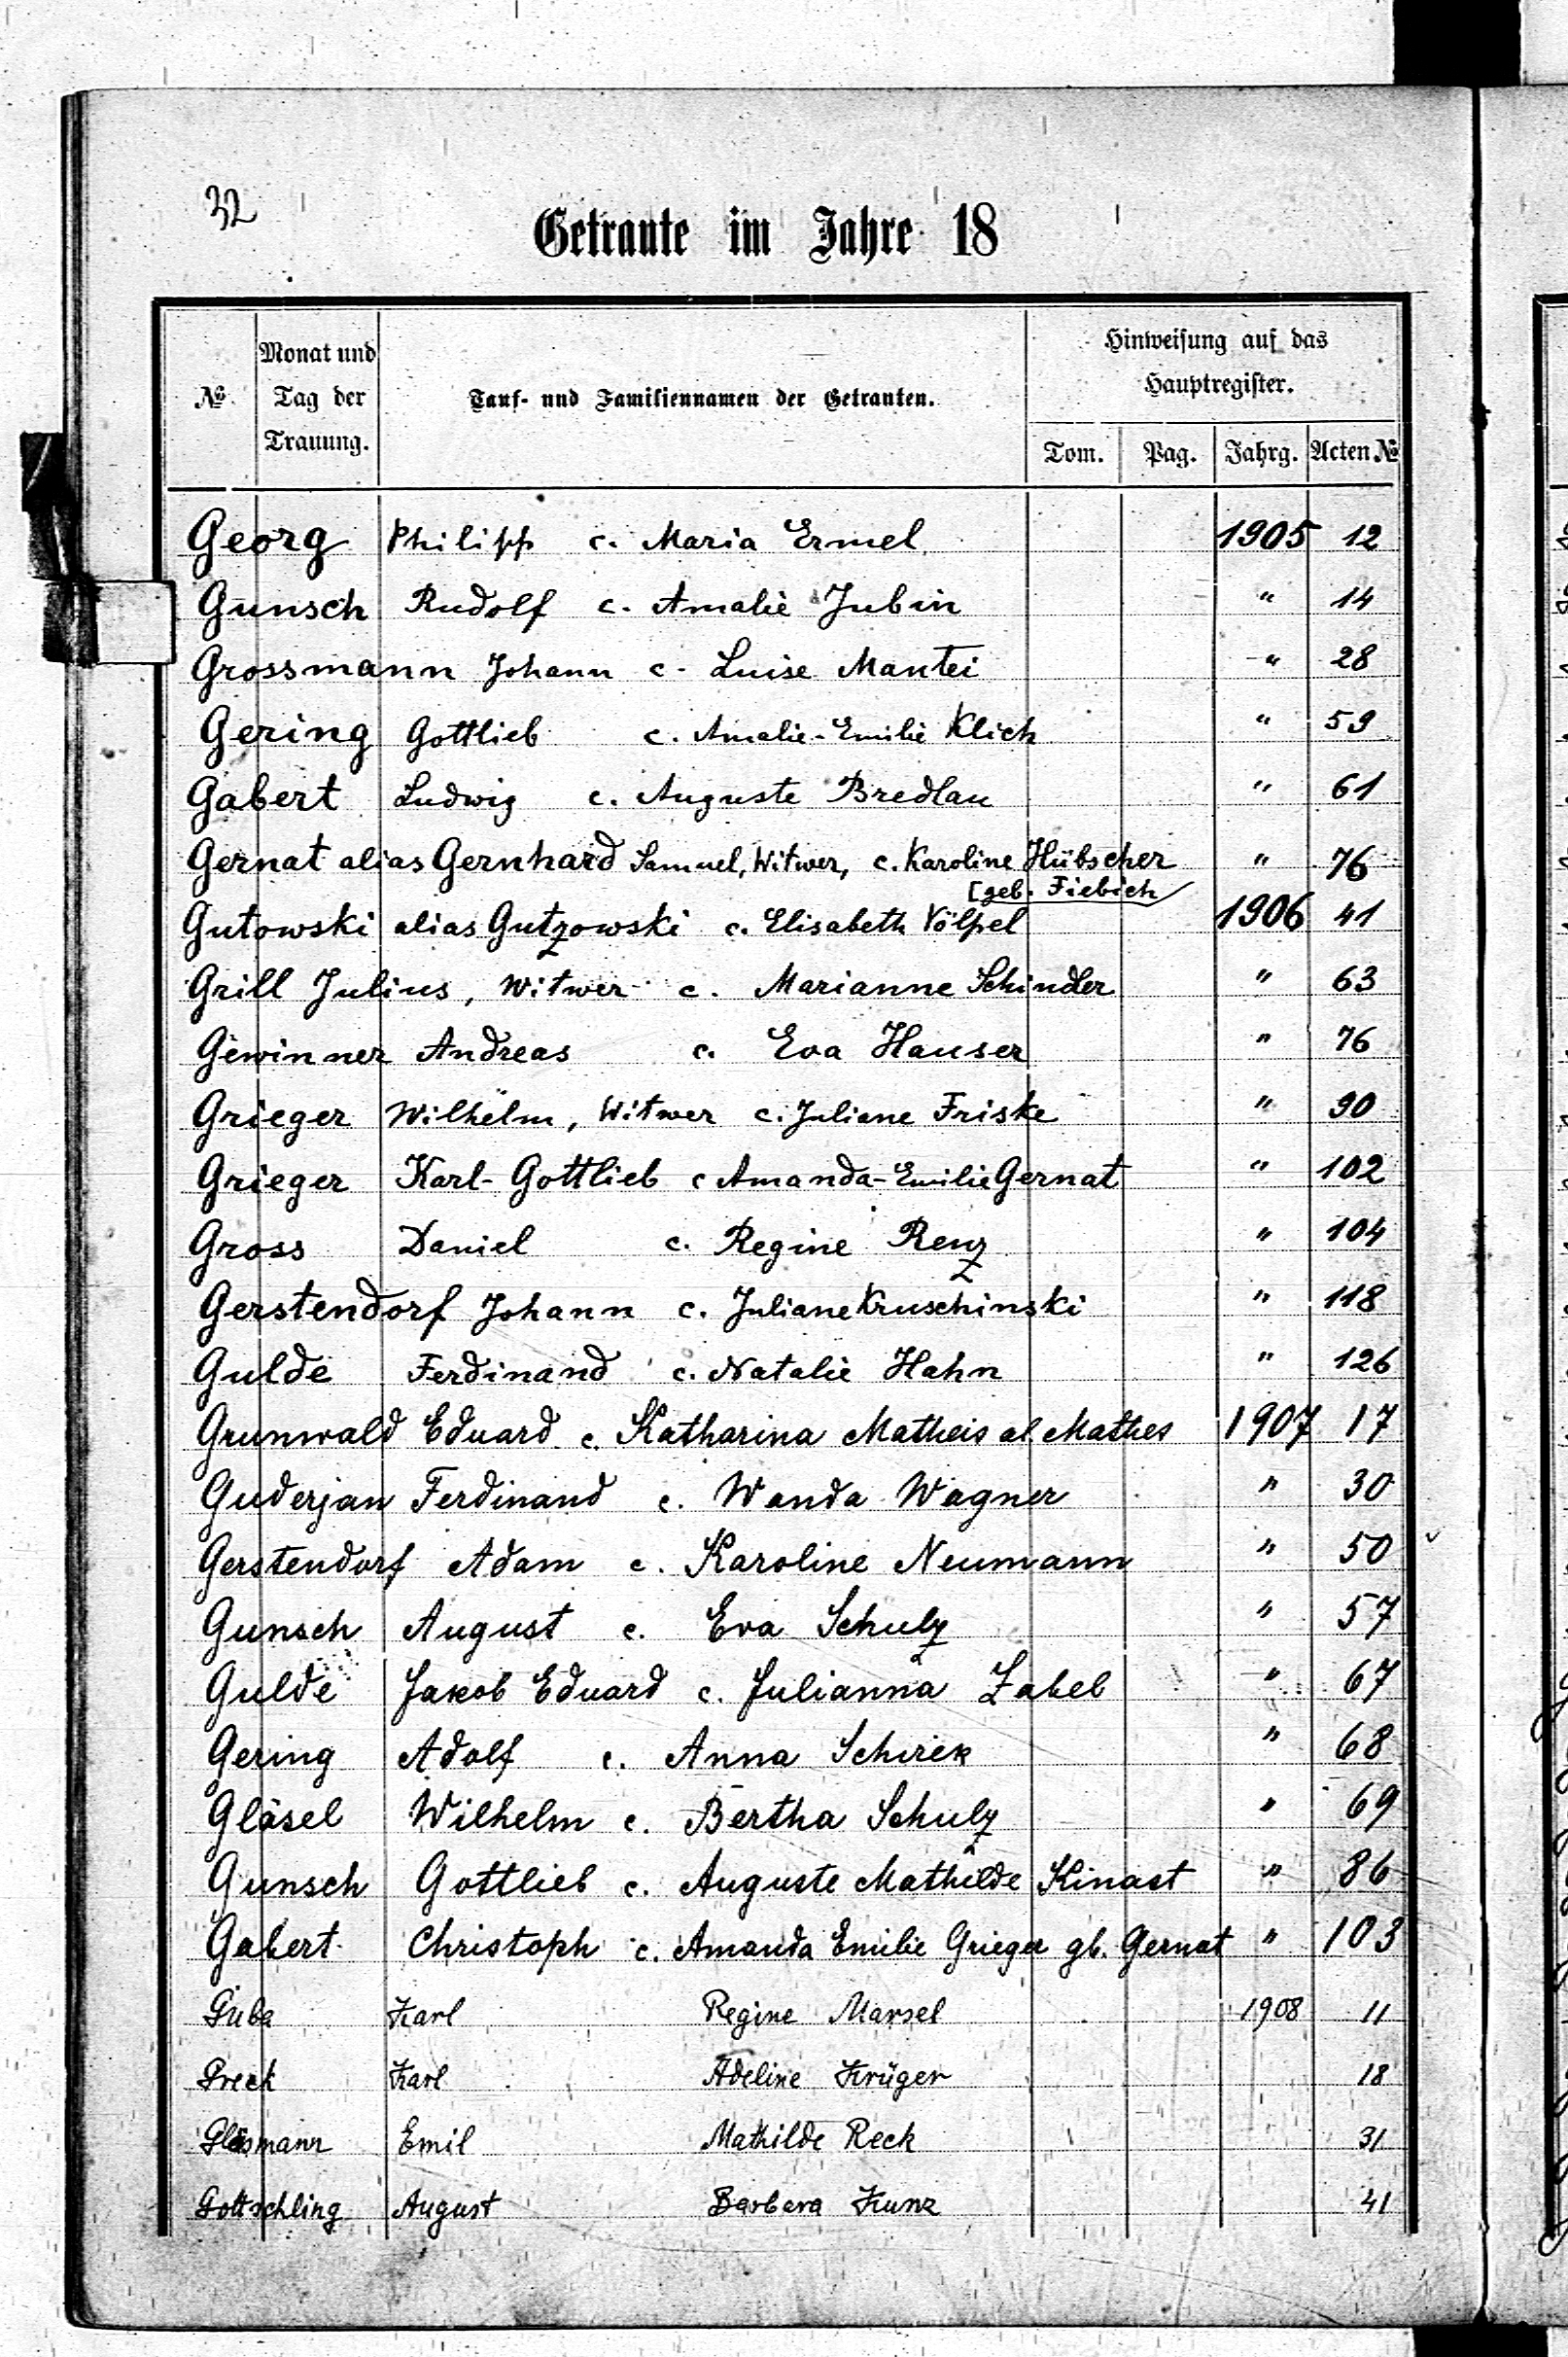 32
Getraute im Jahre 18
№
Monat und
Tag der
Trauung.
Tauf- und Familiennamen der Getrauten.
Hinweisung auf das
Hauptregister.
Tom. Pag. Jahrg. Acten №
Georg Philipp c. Maria Ermel 1905 12
Gunsch Rudolf c. Amalie Jubin " 14
Grossmann Johann c. Luise Mantei " 28
Gering Gottlieb c. Amalie-Emilie Klich " 59
Gabert Ludwig c. Auguste Bredlau " 61
Gernat alias Gernhard Samuel, Witwer, c. Karoline Hübscher " 76
[geb. Fiebich
Gutowski alias Gutzowski c. Elisabeth Völpel 1906 41
Grill Julius, Witwer c. Marianne Schindler " 63
Gewinner Andreas c. Eva Hauser " 76
Grieger Wilhelm, Witwer c. Juliane Friske " 90
Grieger Karl-Gottlieb c Amanda-Emilie Gernat " 102
Gross Daniel c. Regine Renz " 104
Gerstendorf Johann c. Juliane Kruschinski " 118
Gulde Ferdinand c. Natalie Hahn " 126
Grunwald Eduard c. Katharina Matheis al. Mathes 1907 17
Guderjan Ferdinand c. Wanda Wagner " 30
Gerstendorf Adam c. Karoline Neumann " 50
Gunsch August c. Eva Schulz " 57
Gulde Jakob Eduard c. Julianna Zabel " 67
Gering Adolf c. Anna Schirek " 68
Gläsel Wilhelm c. Bertha Schulz " 69
Gunsch Gottlieb c. Auguste Mathilde Kinast " 86
Gabert Christoph c. Amanda Emilie Grieger gb. Gernat " 103
Guba Karl Regine Marsel 1908 11
Greck Karl Adeline Krüger 18
Gläsmann Emil Mathilde Reck 31
Gottschling August Barbara Kunz 41